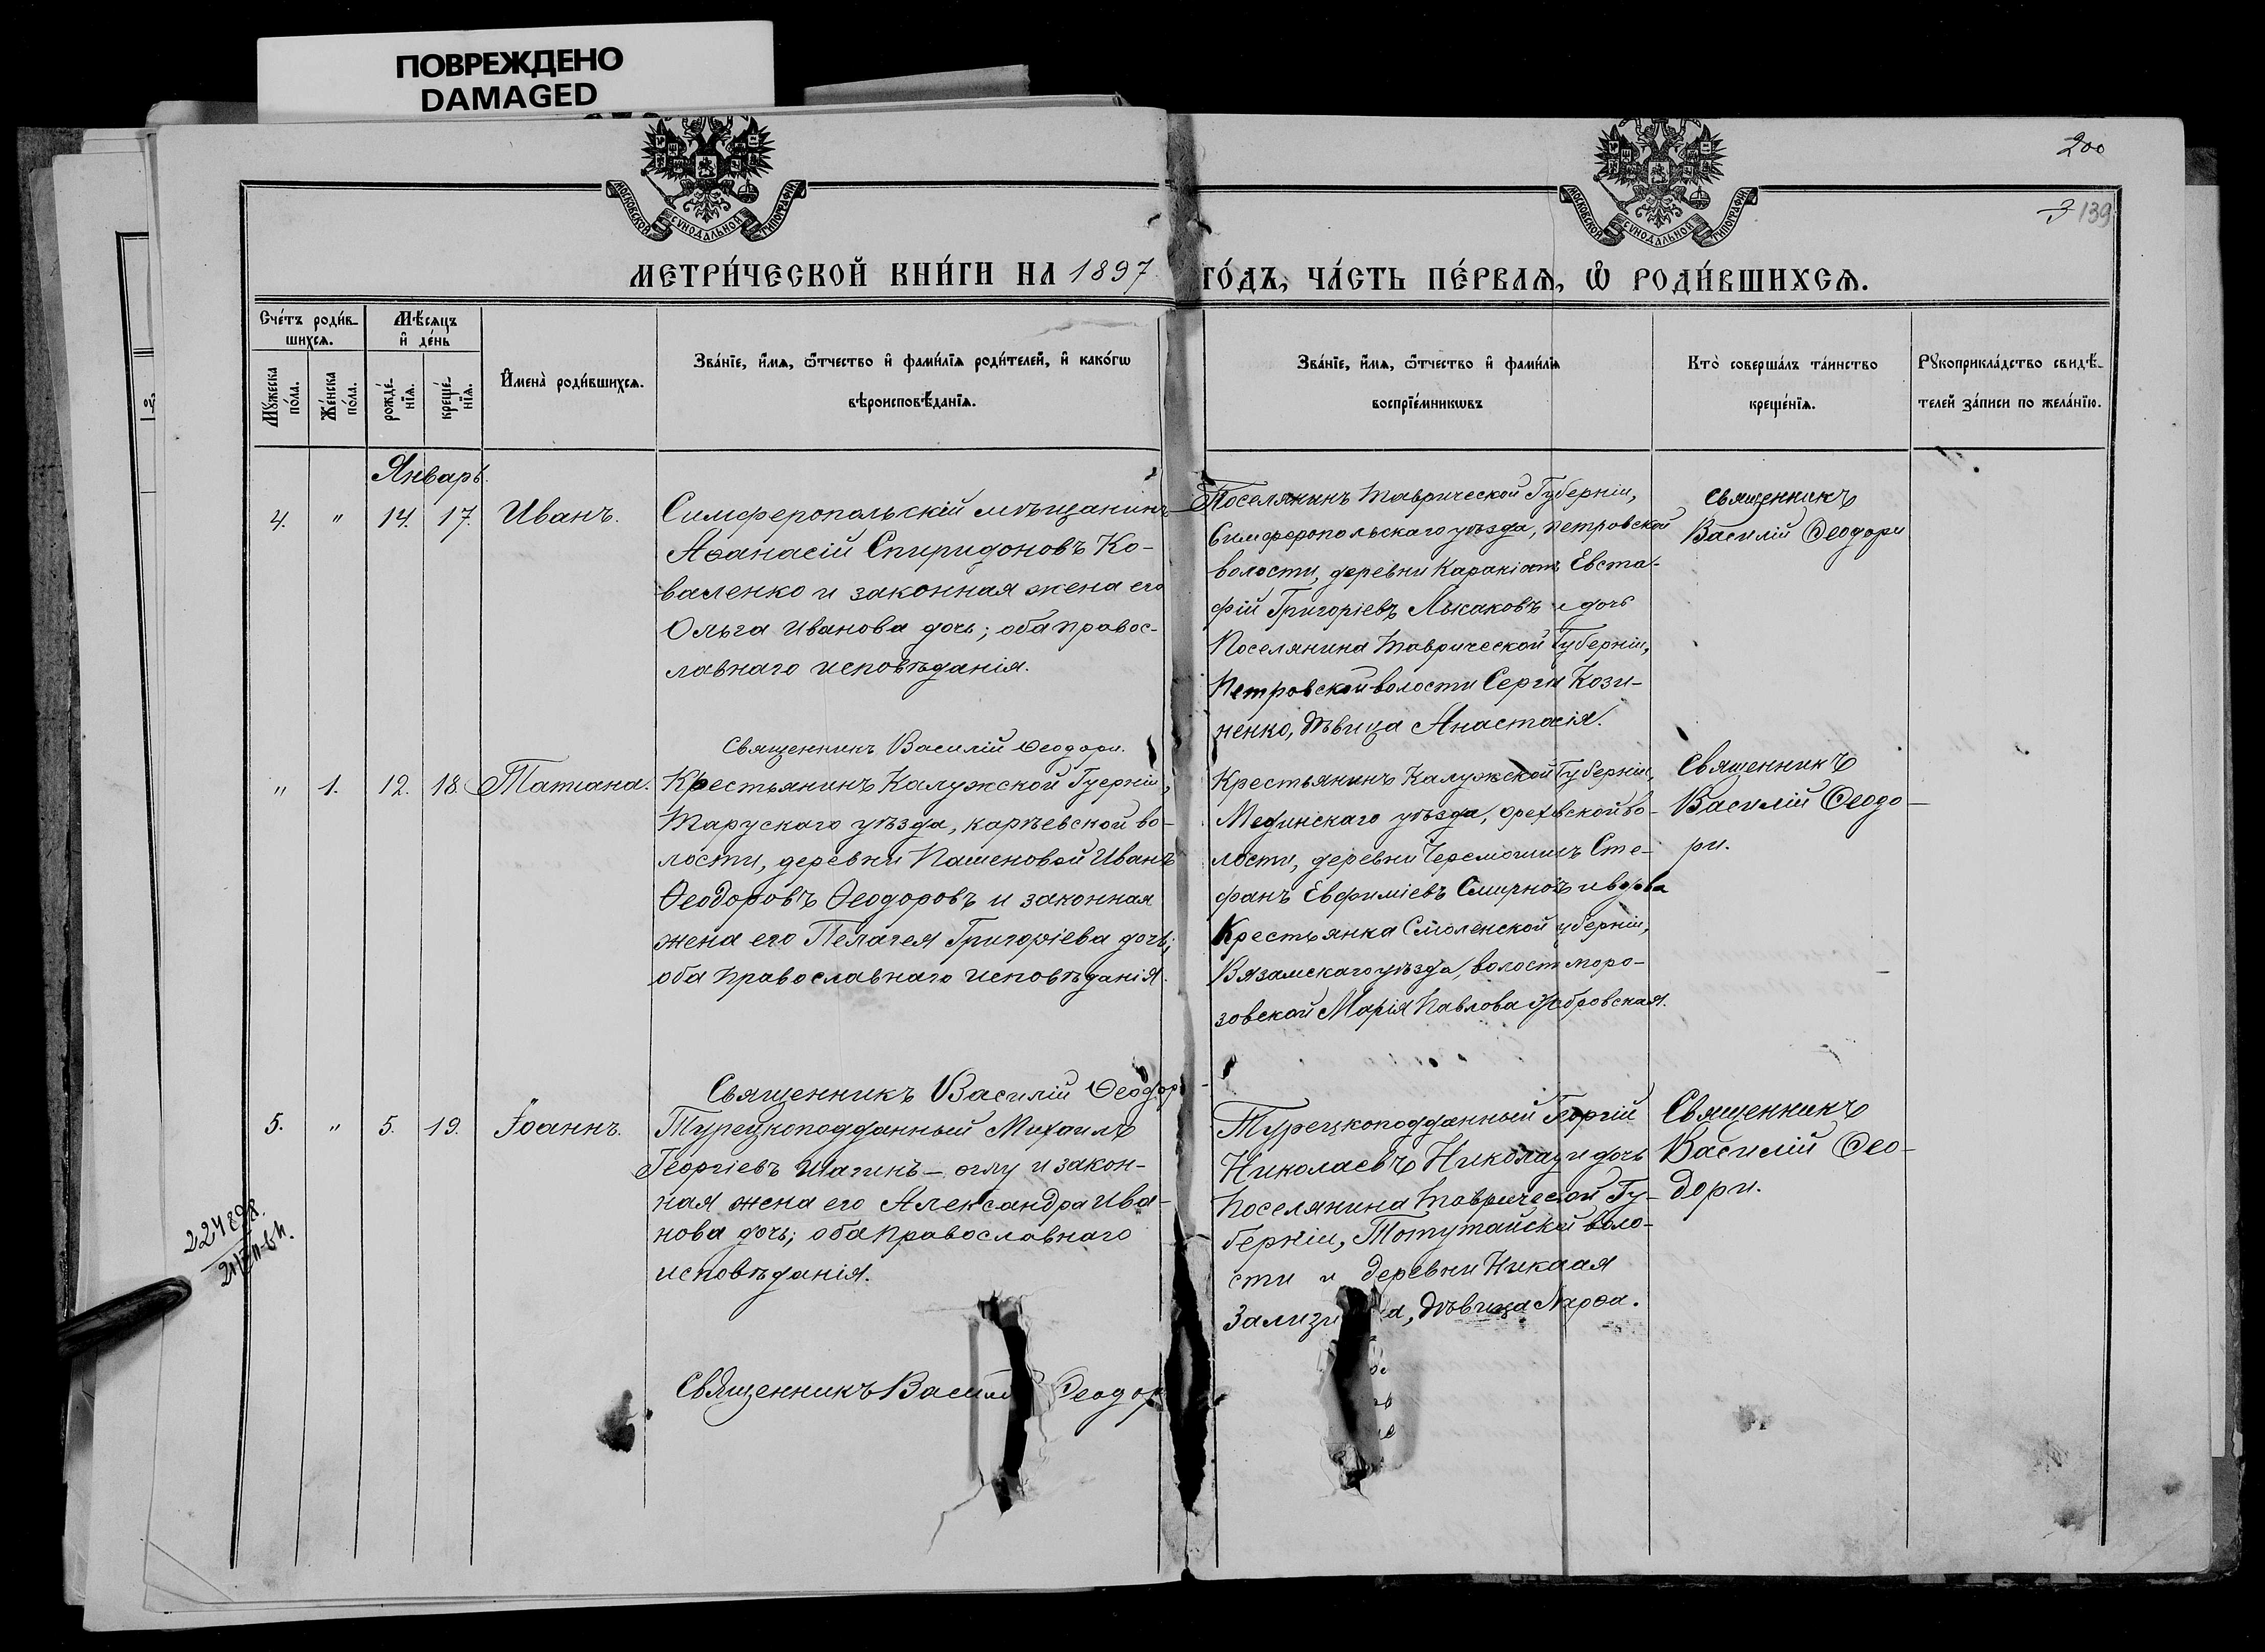 ПОВРЕЖДЕНО
DAMAGED
МОСКОВСКОЙ СѴНОДАЛЬНОЙ ТИПОГРАФІИ
МОСКОВСКОЙ СѴНОДАЛЬНОЙ ТИПОГРАФІИ
200
3 139
МЕТРИ́ЧЕСКОЙ КНИ́ГИ НА 1897 ГО́ДЪ, ЧА́СТЬ ПЕ́РВАѦ, Ѡ҆ РОДИ́ВШИХСѦ.
Сче́тъ роди́в-
шихсѧ.
Мѣ́сѧцъ
и҆ де́нь
Мꙋ́жеска
по́ла.
Же́нска
по́ла.
рожде́-
нїѧ.
креще́-
нїѧ.
И҆мена̀ роди́вшихсѧ.
Зва́нїе, и҆́мѧ, ѻ҆́тчество и҆ фами́лїѧ роди́телей, и҆ како́гѡ
вѣроисповѣ́данїѧ.
Зва́нїе, и҆́мѧ, ѻ҆́тчество и҆ фами́лїѧ
воспрїе́мникѡвъ
Кто̀ соверша́лъ та́инство
креще́нїѧ.
Рꙋкоприкла́дство свидѣ́-
телей за́писи по жела́нїю.
Январь.
4. " 14. 17. Иванъ.
Симферопольскій мѣщанинъ
Аѳанасій Спиридоновъ Ко-
валенко и законная жена его
Ольга Иванова дочь; оба правос-
лавнаго исповѣданія.
Священникъ Василій Ѳеодори.
Поселянинъ Таврической Губерніи,
Симферопольскаго уѣзда, Петровской
волости, деревни Каракіатъ Евста-
фій Григоріевъ Лысаковъ и дочь
Поселянина Таврической Губерніи,
Петровской волости Сергія Кози-
ненко, дѣвица Анастасія.
Священникъ
Василій Ѳеодори
" 1. 12. 18. Татіана.
Крестьянинъ Калужской Гуерніи,
Тарускаго уѣзда, карѣевской во-
лости, деревни Пашеновой Иванъ
Ѳеодоровъ Ѳеодоровъ и законная
жена его Пелагея Григоріева дочь;
оба православнаго исповѣданія.
Священникъ Василій Ѳеодор
Крестьянинъ Калужской Губерніи,
Мединскаго уѣзда, ореховской во-
лости, деревни Черемошинъ Сте-
фанъ Евфиміевъ Смирновъ и вдова
Крестьянка Смоленской уберніи,
Вяземскаго уѣзда, волост моро-
зовской Марія Павлова
Священникъ
Василій Ѳеодо-
ри.
5. " 5. 19. Іоаннъ.
Турецкоподданный Михаилъ
Георгіевъ Шагинъ-оглу и закон-
ная жена его Александра Ива-
нова дочь; оба православнаго
исповѣданія.
Священникъ Васил Ѳеодор
Турецкоподданный Георгій
Николаевъ Николау и дочь
Поселянина Таврической Гу-
берніи, Тотутайской воло-
сти и деревни Николая
Зализн а, дѣвица Марѳа.
Священникъ
Василій Ѳео-
дори.